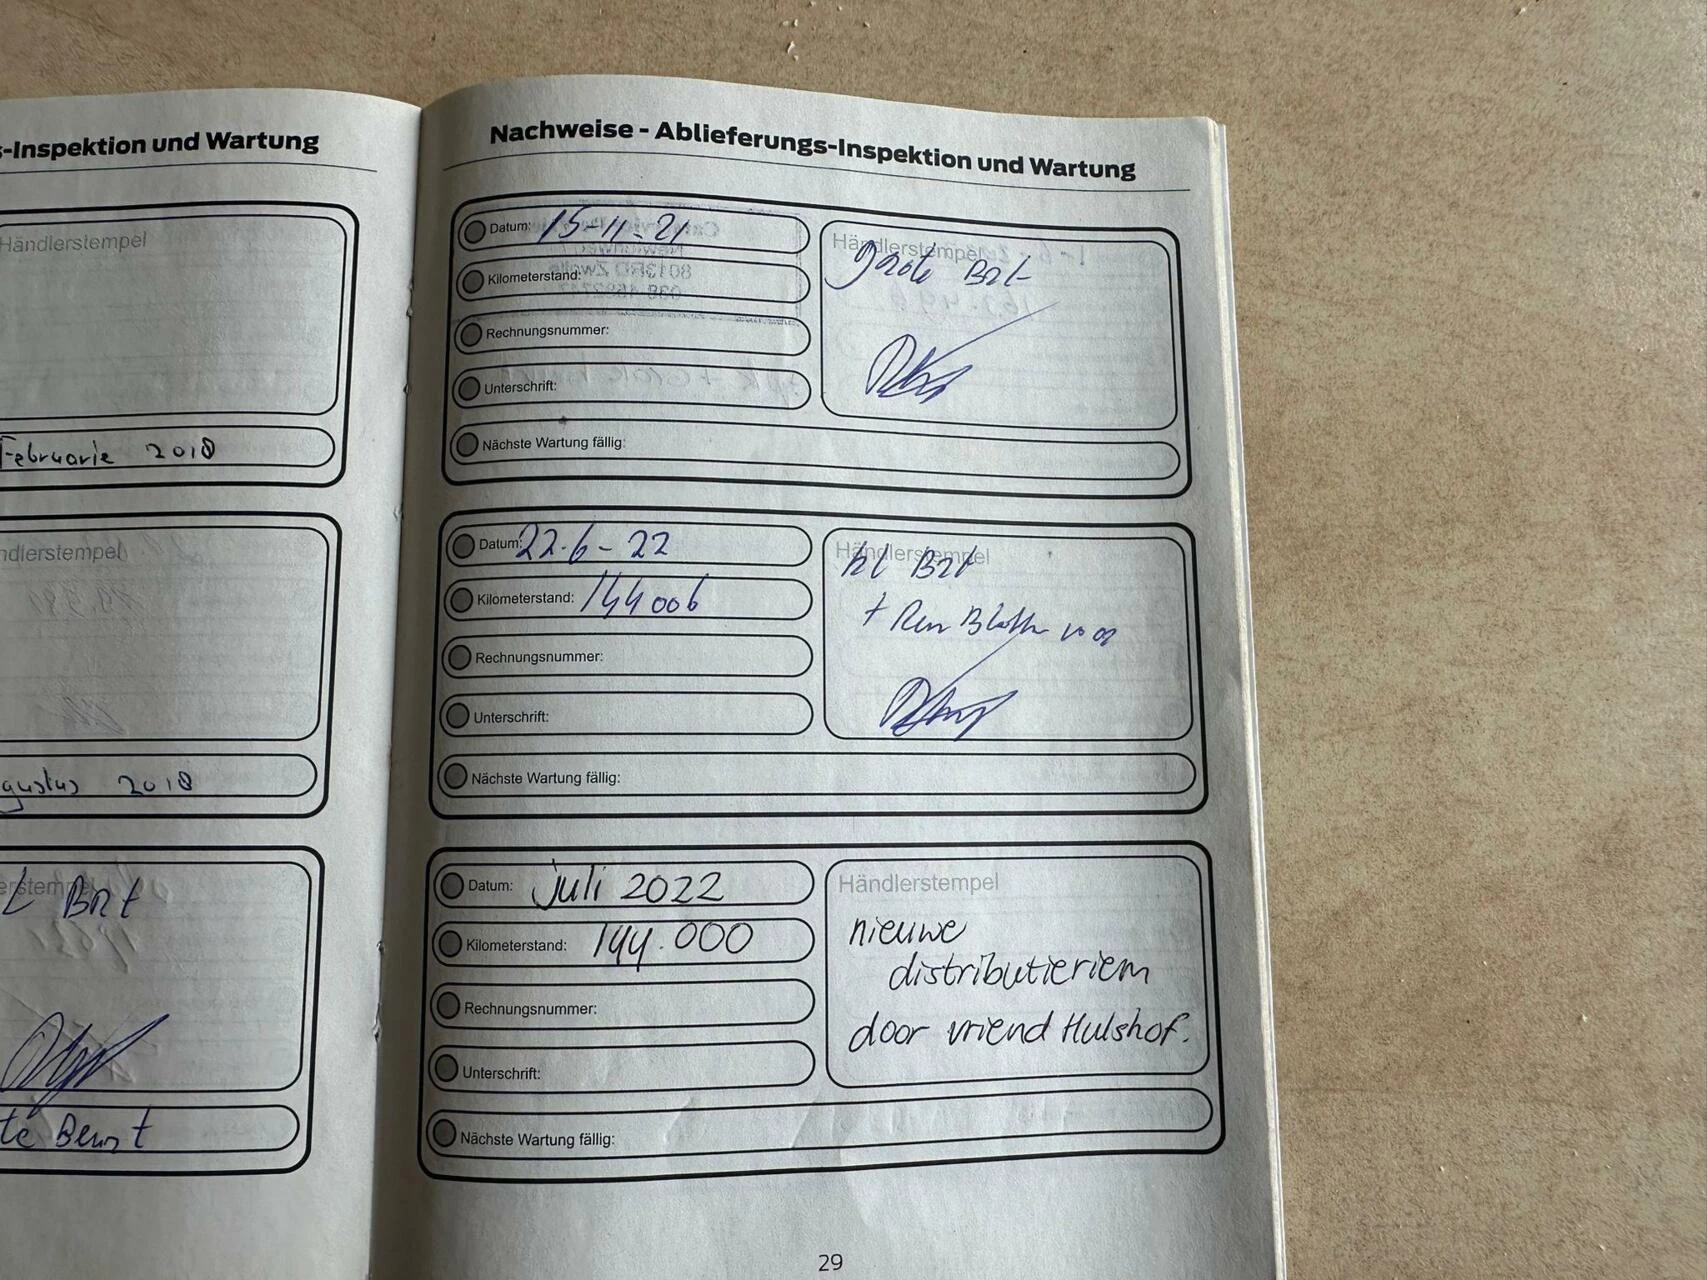 -Inspektion und Wartung
Händlerstempel
Februarie 2018
Händlerstempel
gustus 2018
Brt
te Beurt
Nachweise - Ablieferungs-Inspektion und Wartung
Datum: 15-11-21
Kilometerstand:
Rechnungsnummer:
Unterschrift:
Nächste Wartung fällig:
Händlerstempel
grote Brt
Datum: 22-6-22
Kilometerstand: 144006
Rechnungsnummer:
Unterschrift:
Nächste Wartung fällig:
Händlerstempel
kl Brt
+ Rem
Datum: juli 2022
Kilometerstand: 144.000
Rechnungsnummer:
Unterschrift:
Nächste Wartung fällig:
Händlerstempel
nieuwe
distributieriem
door vriend Hulshof.
29